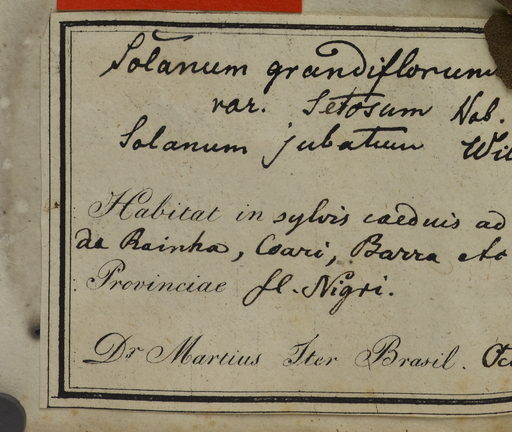 Solanum grandiflorum
var. Setosum Nob.
Solanum jubatum Wil
Habitat in sylvis caeduis ad
da Rainha, Coari, Barra etc
Provinciae fl. Nigri.
Dr Martius Iter Brasil. Oc